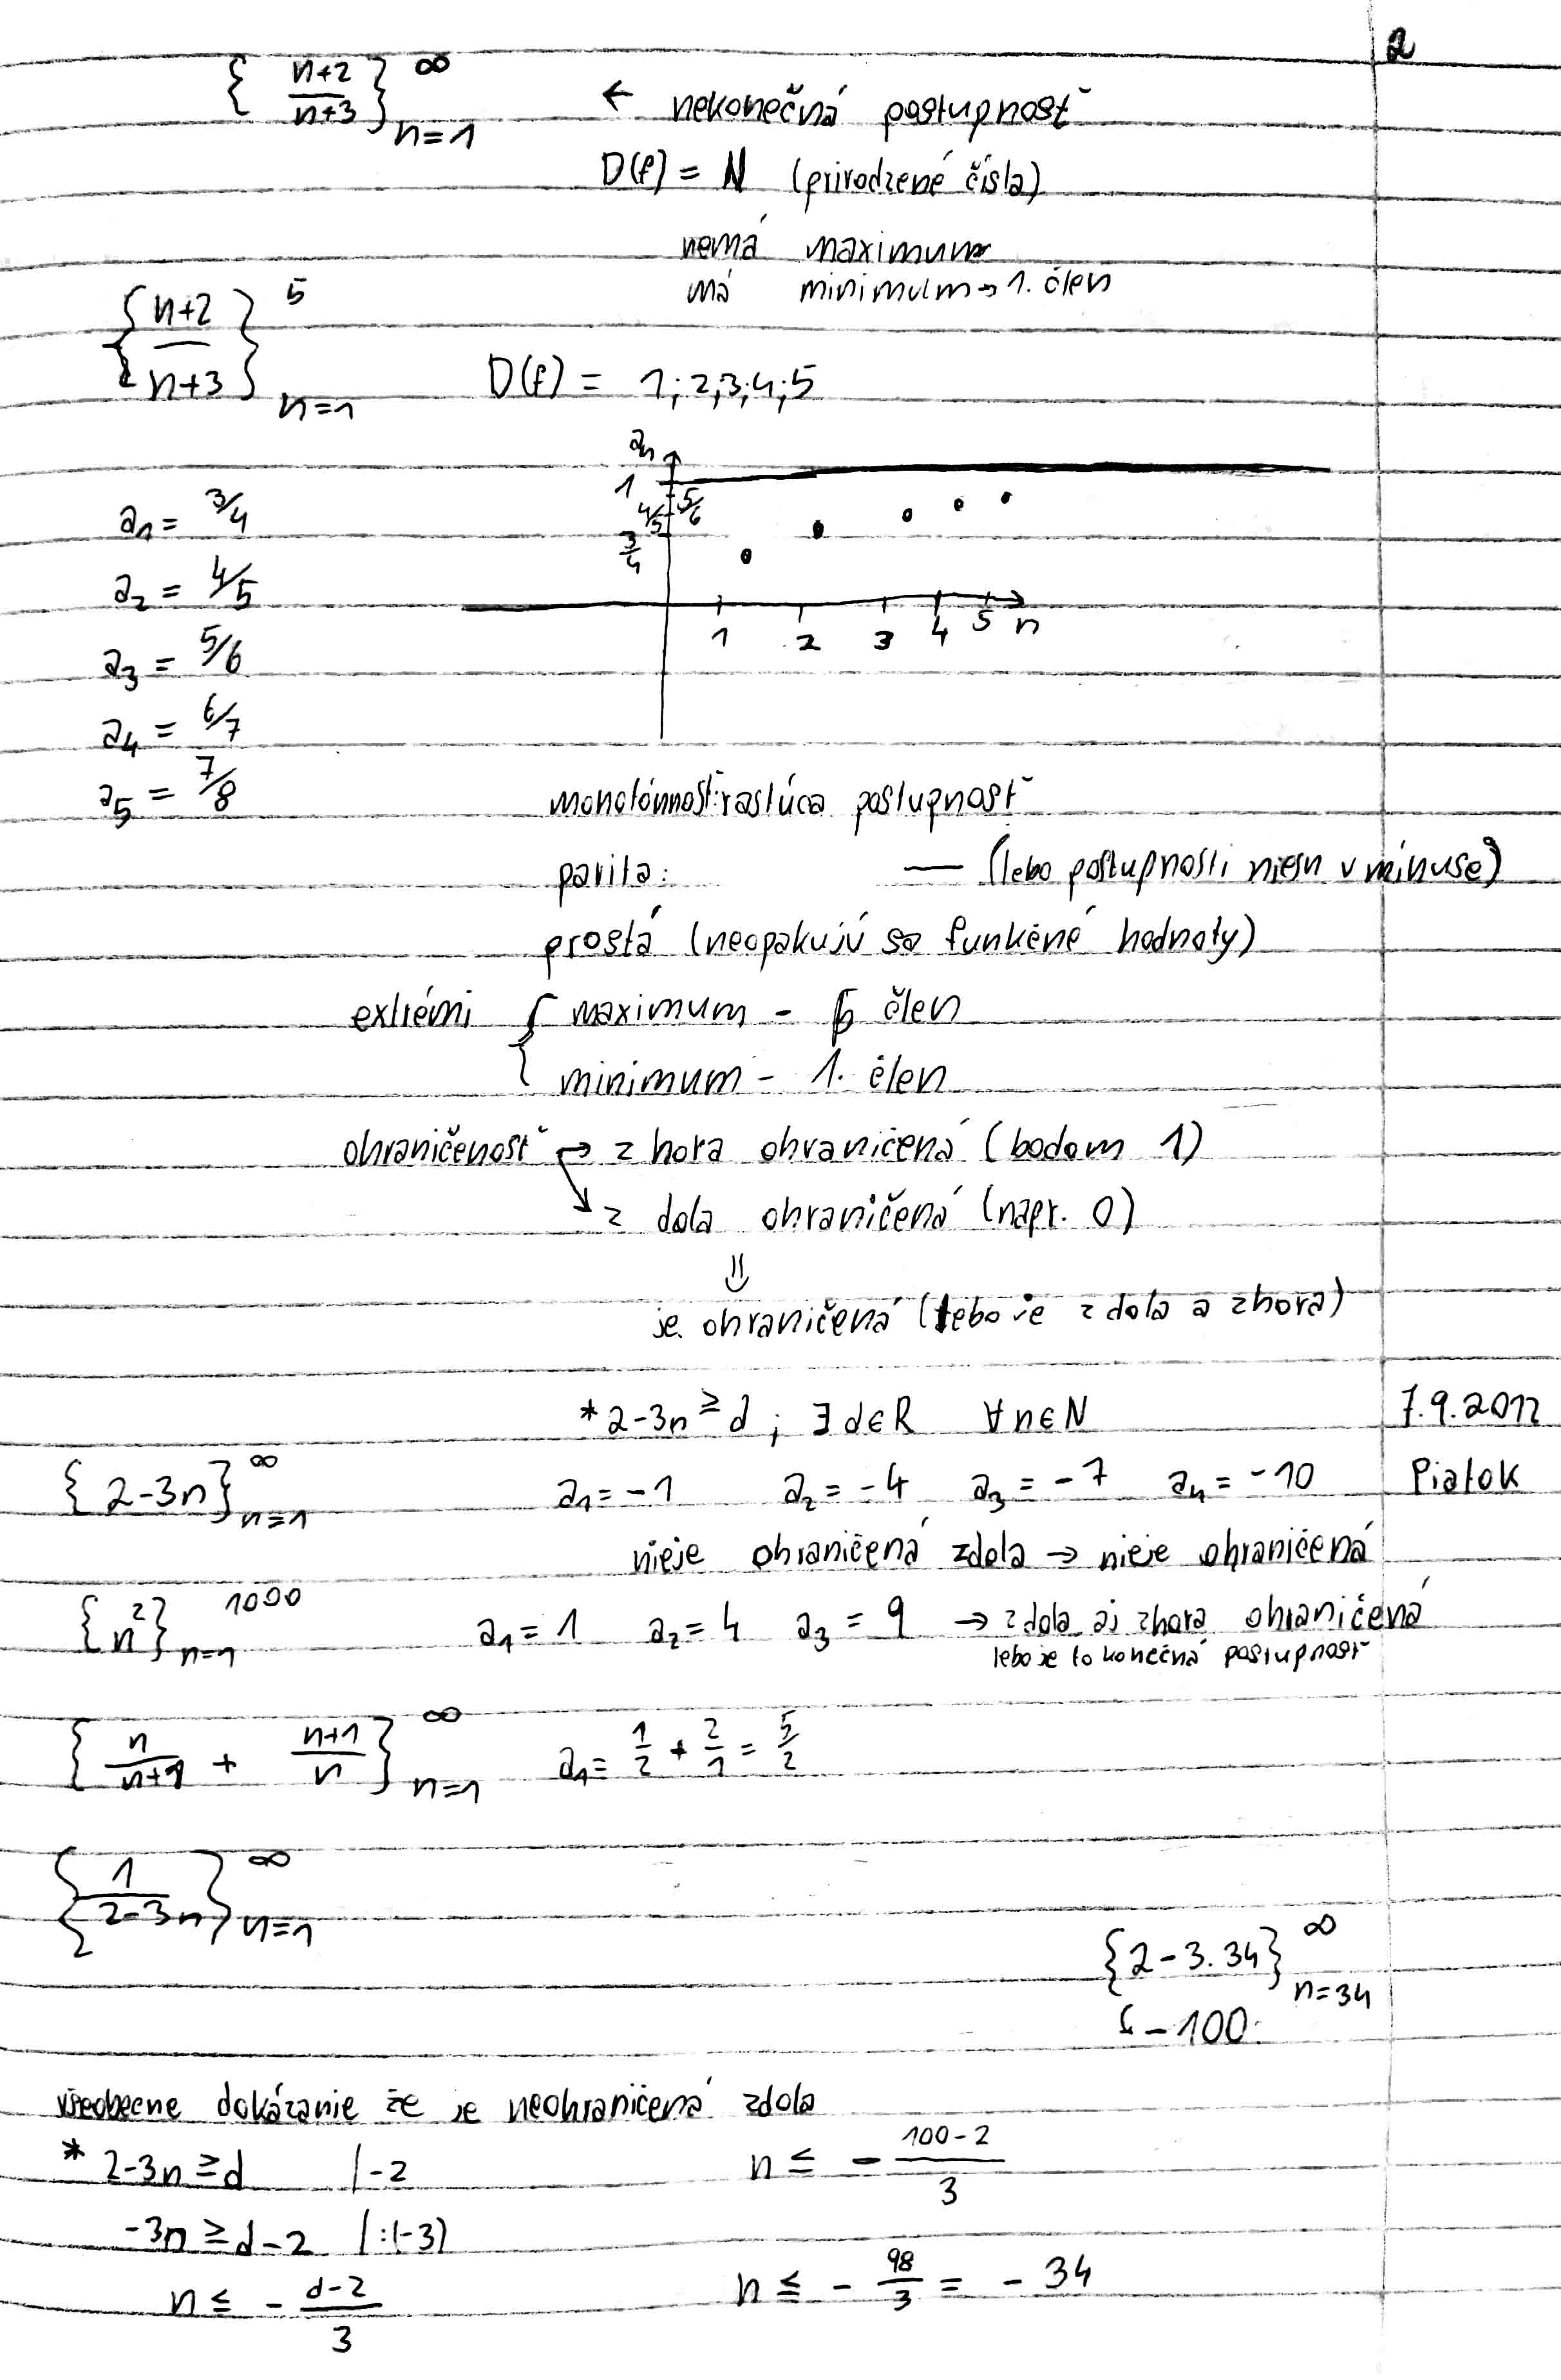 2
{ n+2 / n+3 }∞ n=1 ← nekonečná postupnosť
D(f) = N (prirodzené čísla)
nemá maximum
má minimum → 1. člen
{ n+2 / n+3 }5 n=1 D(f) = 1;2;3;4;5
an
1
4/5 5/6
3/4
1 2 3 4 5 n
a1 = 3/4
a2 = 4/5
a3 = 5/6
a4 = 6/7
a5 = 7/8
monotónnosť: rastúca postupnosť
parita: — (lebo postupnosti niesu v mínuse)
prostá (neopakujú sa funkčné hodnoty)
extrémi { maximum - 5 člen
minimum - 1. člen
ohraničenosť → z hora ohraničená (bodom 1)
↘ z dola ohraničená (napr. 0)
⇓
je ohraničená (lebo je z dola a zhora)
* 2-3n ≥ d ; ∃ d∈R ∀n∈N 7.9.2012
{ 2-3n }∞ n=1 a1 = -1 a2 = -4 a3 = -7 a4 = -10 Piatok
nieje ohraničená zdola → nieje ohraničená
{ n² }1000 n=1 a1 = 1 a2 = 4 a3 = 9 → zdola aj zhora ohraničená
lebo je to konečná postupnosť
{ n/n+1 + n+1/n }∞ n=1 a1 = 1/2 + 2/1 = 5/2
{ 1 / 2-3n }∞ n=1
{2-3.34}∞ n=34
↳ -100
všeobecne dokázanie že je neohraničená zdola
* 2-3n ≥ d /-2 n ≤ - 100-2 / 3
-3n ≥ d-2 /:(-3)
n ≤ - d-2 / 3 n ≤ - 98/3 = - 34